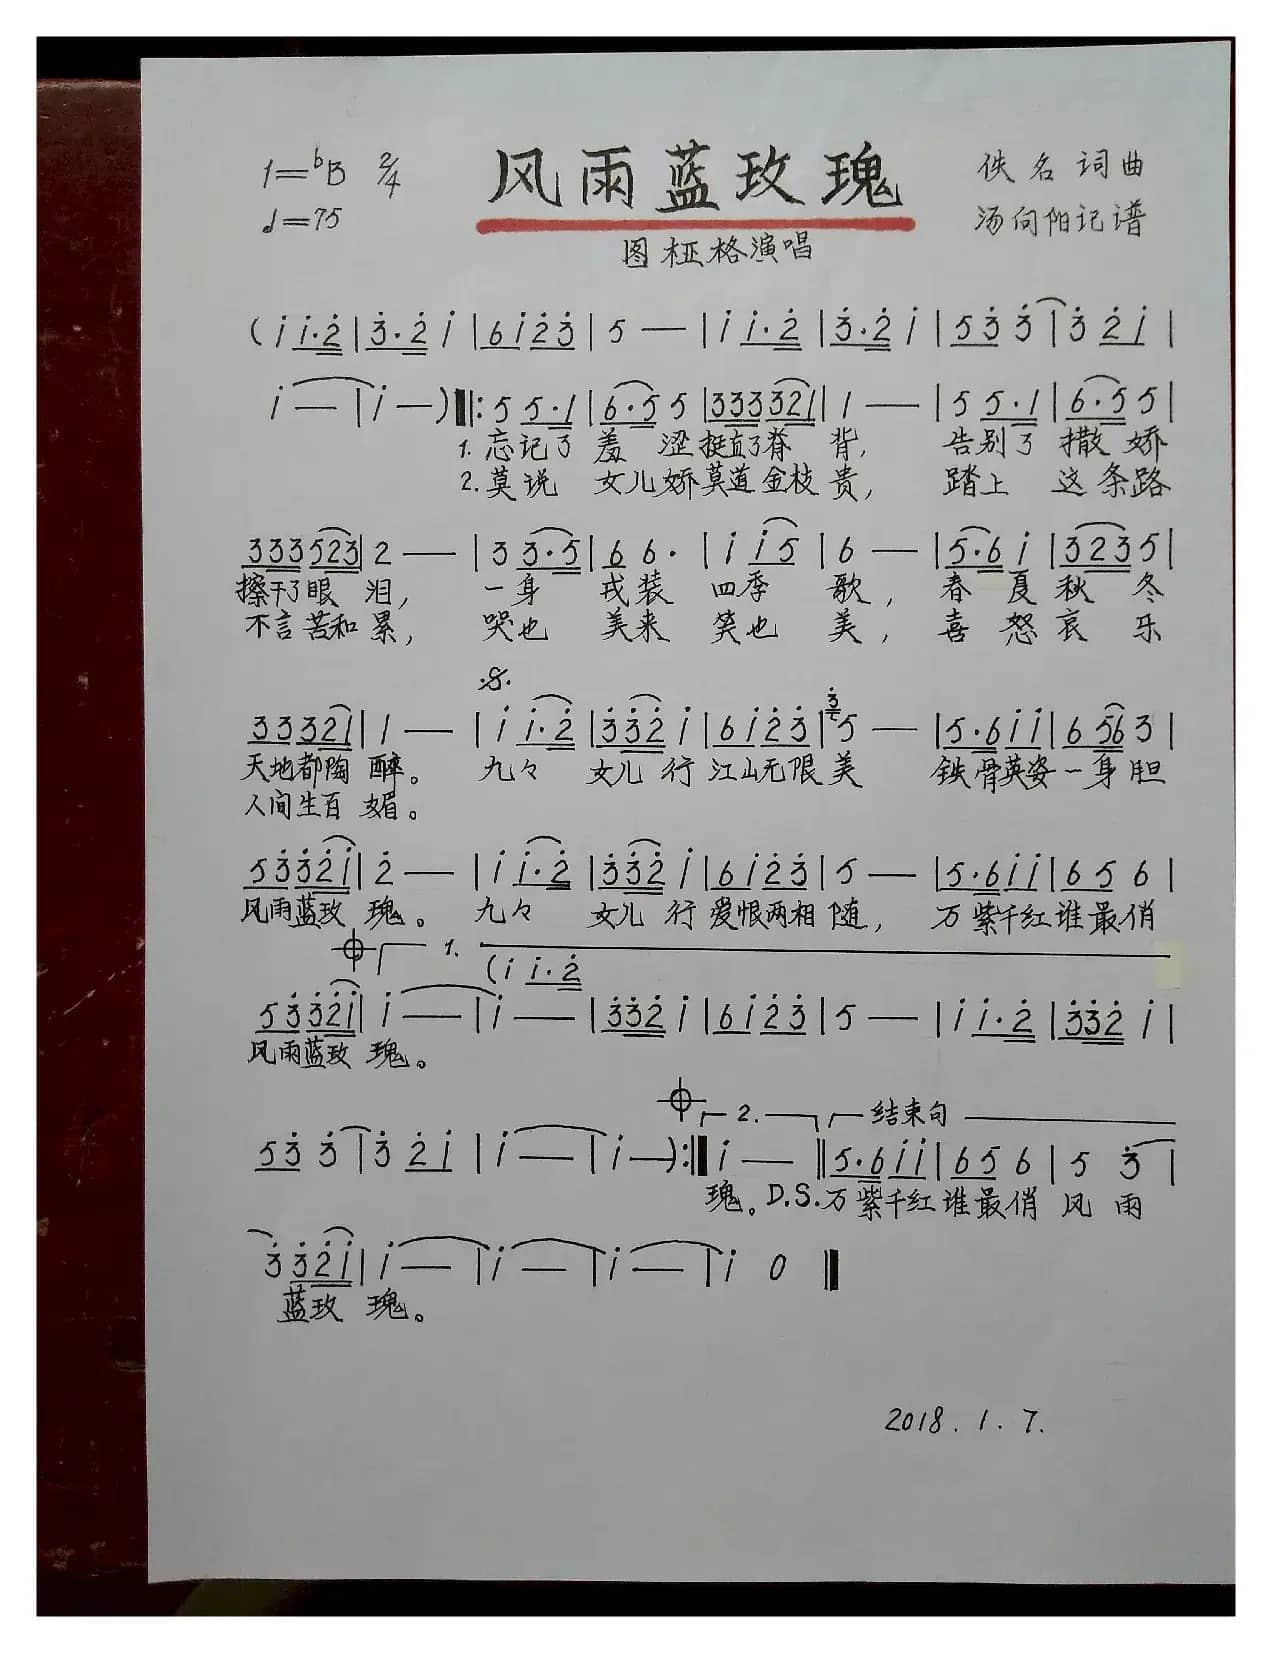 1=♭B 2/4 风雨蓝玫瑰 佚名词曲
♩=75 图桠格演唱 汤向阳记谱
(i i·2|3·2 i|6i23|5 —|i i·2|3·2 i|53 3|3 2i|
i —|i —)‖:5 5·1|6·5 5|3333321|1 —|5 5·1|6·5 5|
1.忘记了 羞 涩挺直了脊 背, 告别了 撒 娇
2.莫说 女儿娇莫道金枝贵, 踏上 这条路
333523|2 —|3 3·5|6 6·|i i5|6 —|5·6 i|323 5|
擦干了眼 泪, 一身 戎装 四季 歌, 春 夏秋 冬
不言苦和累, 哭也 美来 笑也 美, 喜 怒哀 乐
𝄋
333321|1 —|i i·2|332 i|6i23|5 —|5·6ii|6 56 3|
天地都陶 醉。 九々 女儿 行江山无限美 铁骨英姿一身胆
人间生百媚。
5332i|2 —|i i·2|332 i|6i23|5 —|5·6ii|65 6|
风雨蓝玫 瑰。 九々 女儿 行爱恨两相随, 万紫千红谁最俏
1.
(i i·2
5332i|i —|i —|332 i|6i23|5 —|i i·2|332 i|
风雨蓝玫 瑰。
2. 结束句
53 3|3 2i|i —|i —):‖i —‖5·6ii|65 6|5 3|
瑰。D.S.万紫千红谁最俏 风 雨
3 32i|i —|i —|i —|i 0‖
蓝玫 瑰。
2018.1.7.